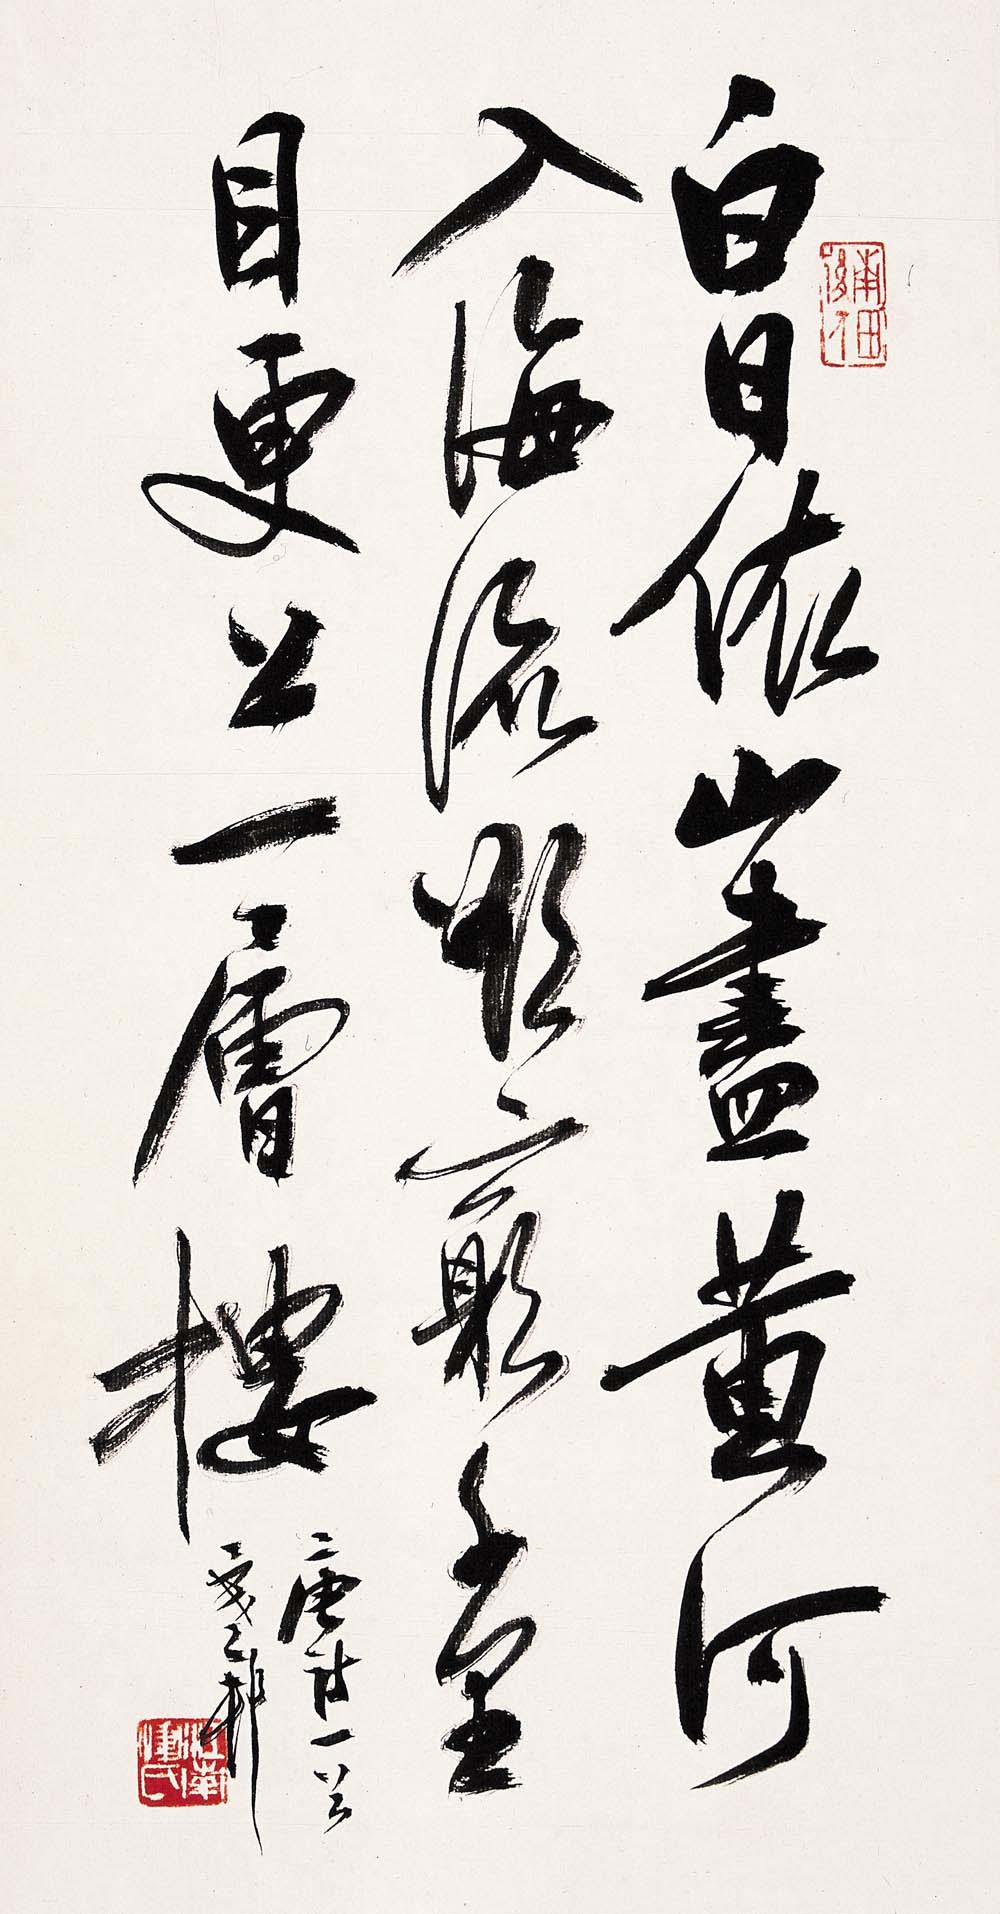 白日依山盡黃河
入海流欲窮千里
目更上一層樓
唐詩一首